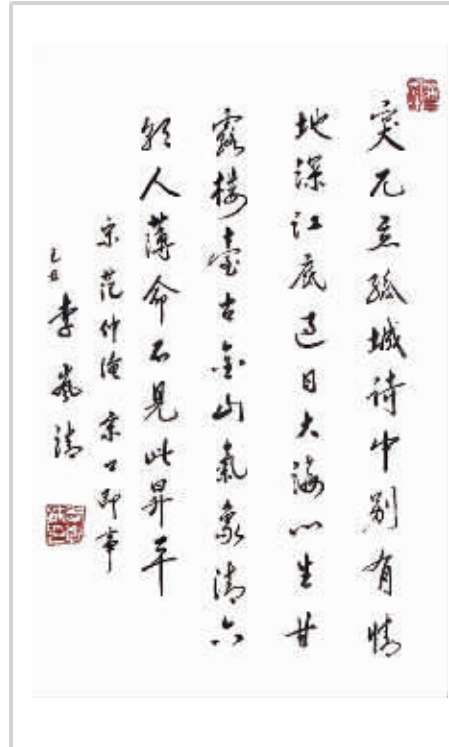 突兀立孤城詩中別有情
地深江底過日大海心生甘
露樓臺古金山氣象清六
朝人薄命不見此昇平
宋范仲淹京口即事
己丑 李嵐清